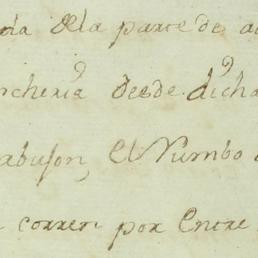 dela parte de
rcheria desde dicha
abuson, el Rumbo
correr por entre